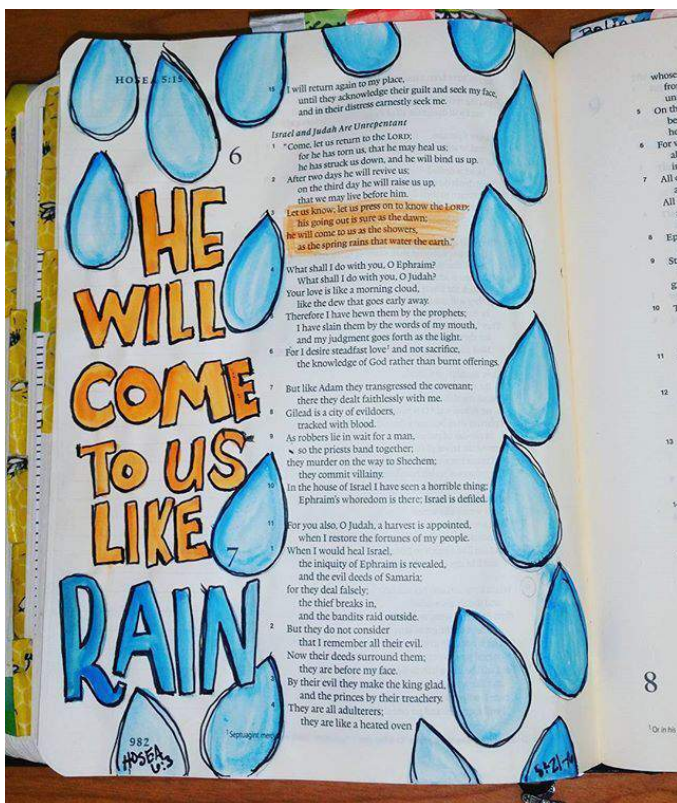 HOSEA 5:15
15 I will return again to my place,
until they acknowledge their guilt and seek my face,
and in their distress earnestly seek me.
Israel and Judah Are Unrepentant
6
1 "Come, let us return to the LORD;
for he has torn us, that he may heal us;
he has struck us down, and he will bind us up.
2 After two days he will revive us;
on the third day he will raise us up,
that we may live before him.
3 Let us know; let us press on to know the LORD;
his going out is sure as the dawn;
he will come to us as the showers,
as the spring rains that water the earth."
4 What shall I do with you, O Ephraim?
What shall I do with you, O Judah?
Your love is like a morning cloud,
like the dew that goes early away.
5 Therefore I have hewn them by the prophets;
I have slain them by the words of my mouth,
and my judgment goes forth as the light.
6 For I desire steadfast love¹ and not sacrifice,
the knowledge of God rather than burnt offerings.
7 But like Adam they transgressed the covenant;
there they dealt faithlessly with me.
8 Gilead is a city of evildoers,
tracked with blood.
9 As robbers lie in wait for a man,
so the priests band together;
they murder on the way to Shechem;
they commit villainy.
10 In the house of Israel I have seen a horrible thing;
Ephraim's whoredom is there; Israel is defiled.
11 For you also, O Judah, a harvest is appointed,
when I restore the fortunes of my people.
7
1 When I would heal Israel,
the iniquity of Ephraim is revealed,
and the evil deeds of Samaria;
for they deal falsely;
the thief breaks in,
and the bandits raid outside.
2 But they do not consider
that I remember all their evil.
Now their deeds surround them;
they are before my face.
3 By their evil they make the king glad,
and the princes by their treachery.
4 They are all adulterers;
they are like a heated oven
¹ Septuagint
982
HE
WILL
COME
TO US
LIKE
RAIN
HOSEA
6:3
whose
5 On th
6 For
7 All
All
8 Ep
9 St
10
11
12
13
8
¹ Or in his